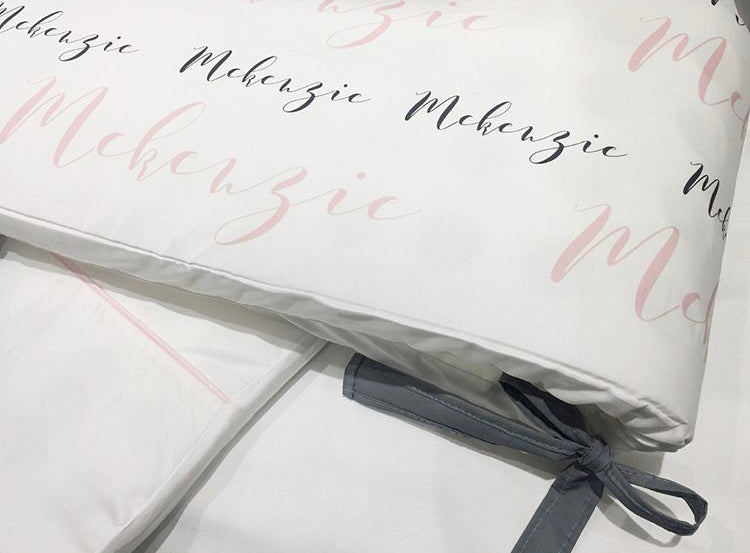 Mckenzie
Mckenzie Mckenzie Mckenzie
Mckenzie